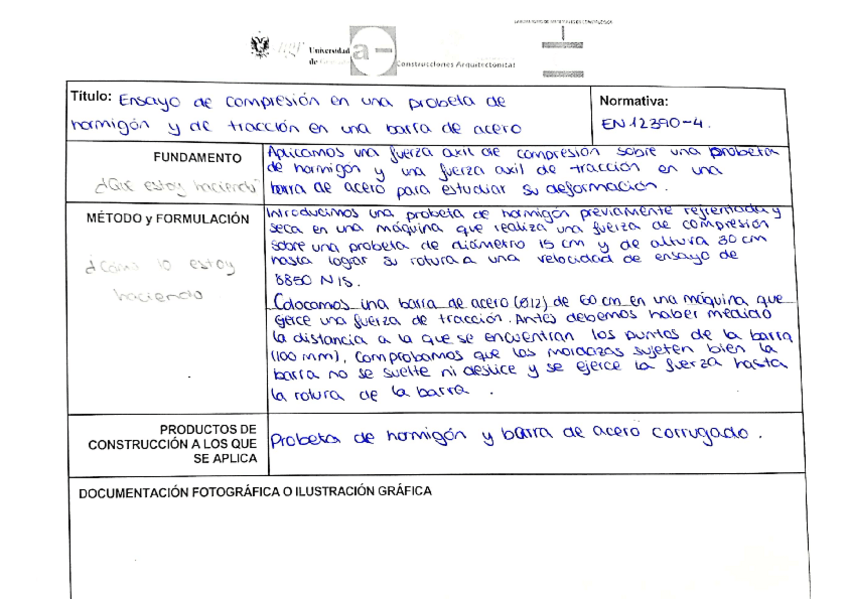 Universidad
de Granada
Construcciones Arquitectónicas
Título: Ensayo de compresión en una probeta de
hormigón y de tracción en una barra de acero
Normativa:
EN 12390-4.
FUNDAMENTO
¿Qué estoy haciendo?
Aplicamos una fuerza axil de compresión sobre una probeta
de hormigon y una fuerza axil de tracción en una
barra de acero para estudiar su deformación.
MÉTODO y FORMULACIÓN
¿Cómo lo estoy
haciendo
Introducimos una probeta de hormigón previamente refrentada y
seca en una máquina que realiza una fuerza de compresión
sobre una probeta de diámetro 15 cm y de altura 30 cm
hasta lograr su rotura a una velocidad de ensayo de
8850 N/s.
Colocamos una barra de acero (ø12) de 60 cm en una máquina que
ejerce una fuerza de tracción. Antes debemos haber medido
la distancia a la que se encuentran los puntos de la barra
(100 mm). Comprobamos que las mordazas sujeten bien la
barra no se suelte ni deslice y se ejerce la fuerza hasta
la rotura de la barra.
PRODUCTOS DE
CONSTRUCCIÓN A LOS QUE
SE APLICA
Probeta de hormigón y barra de acero corrugado.
DOCUMENTACIÓN FOTOGRÁFICA O ILUSTRACIÓN GRÁFICA